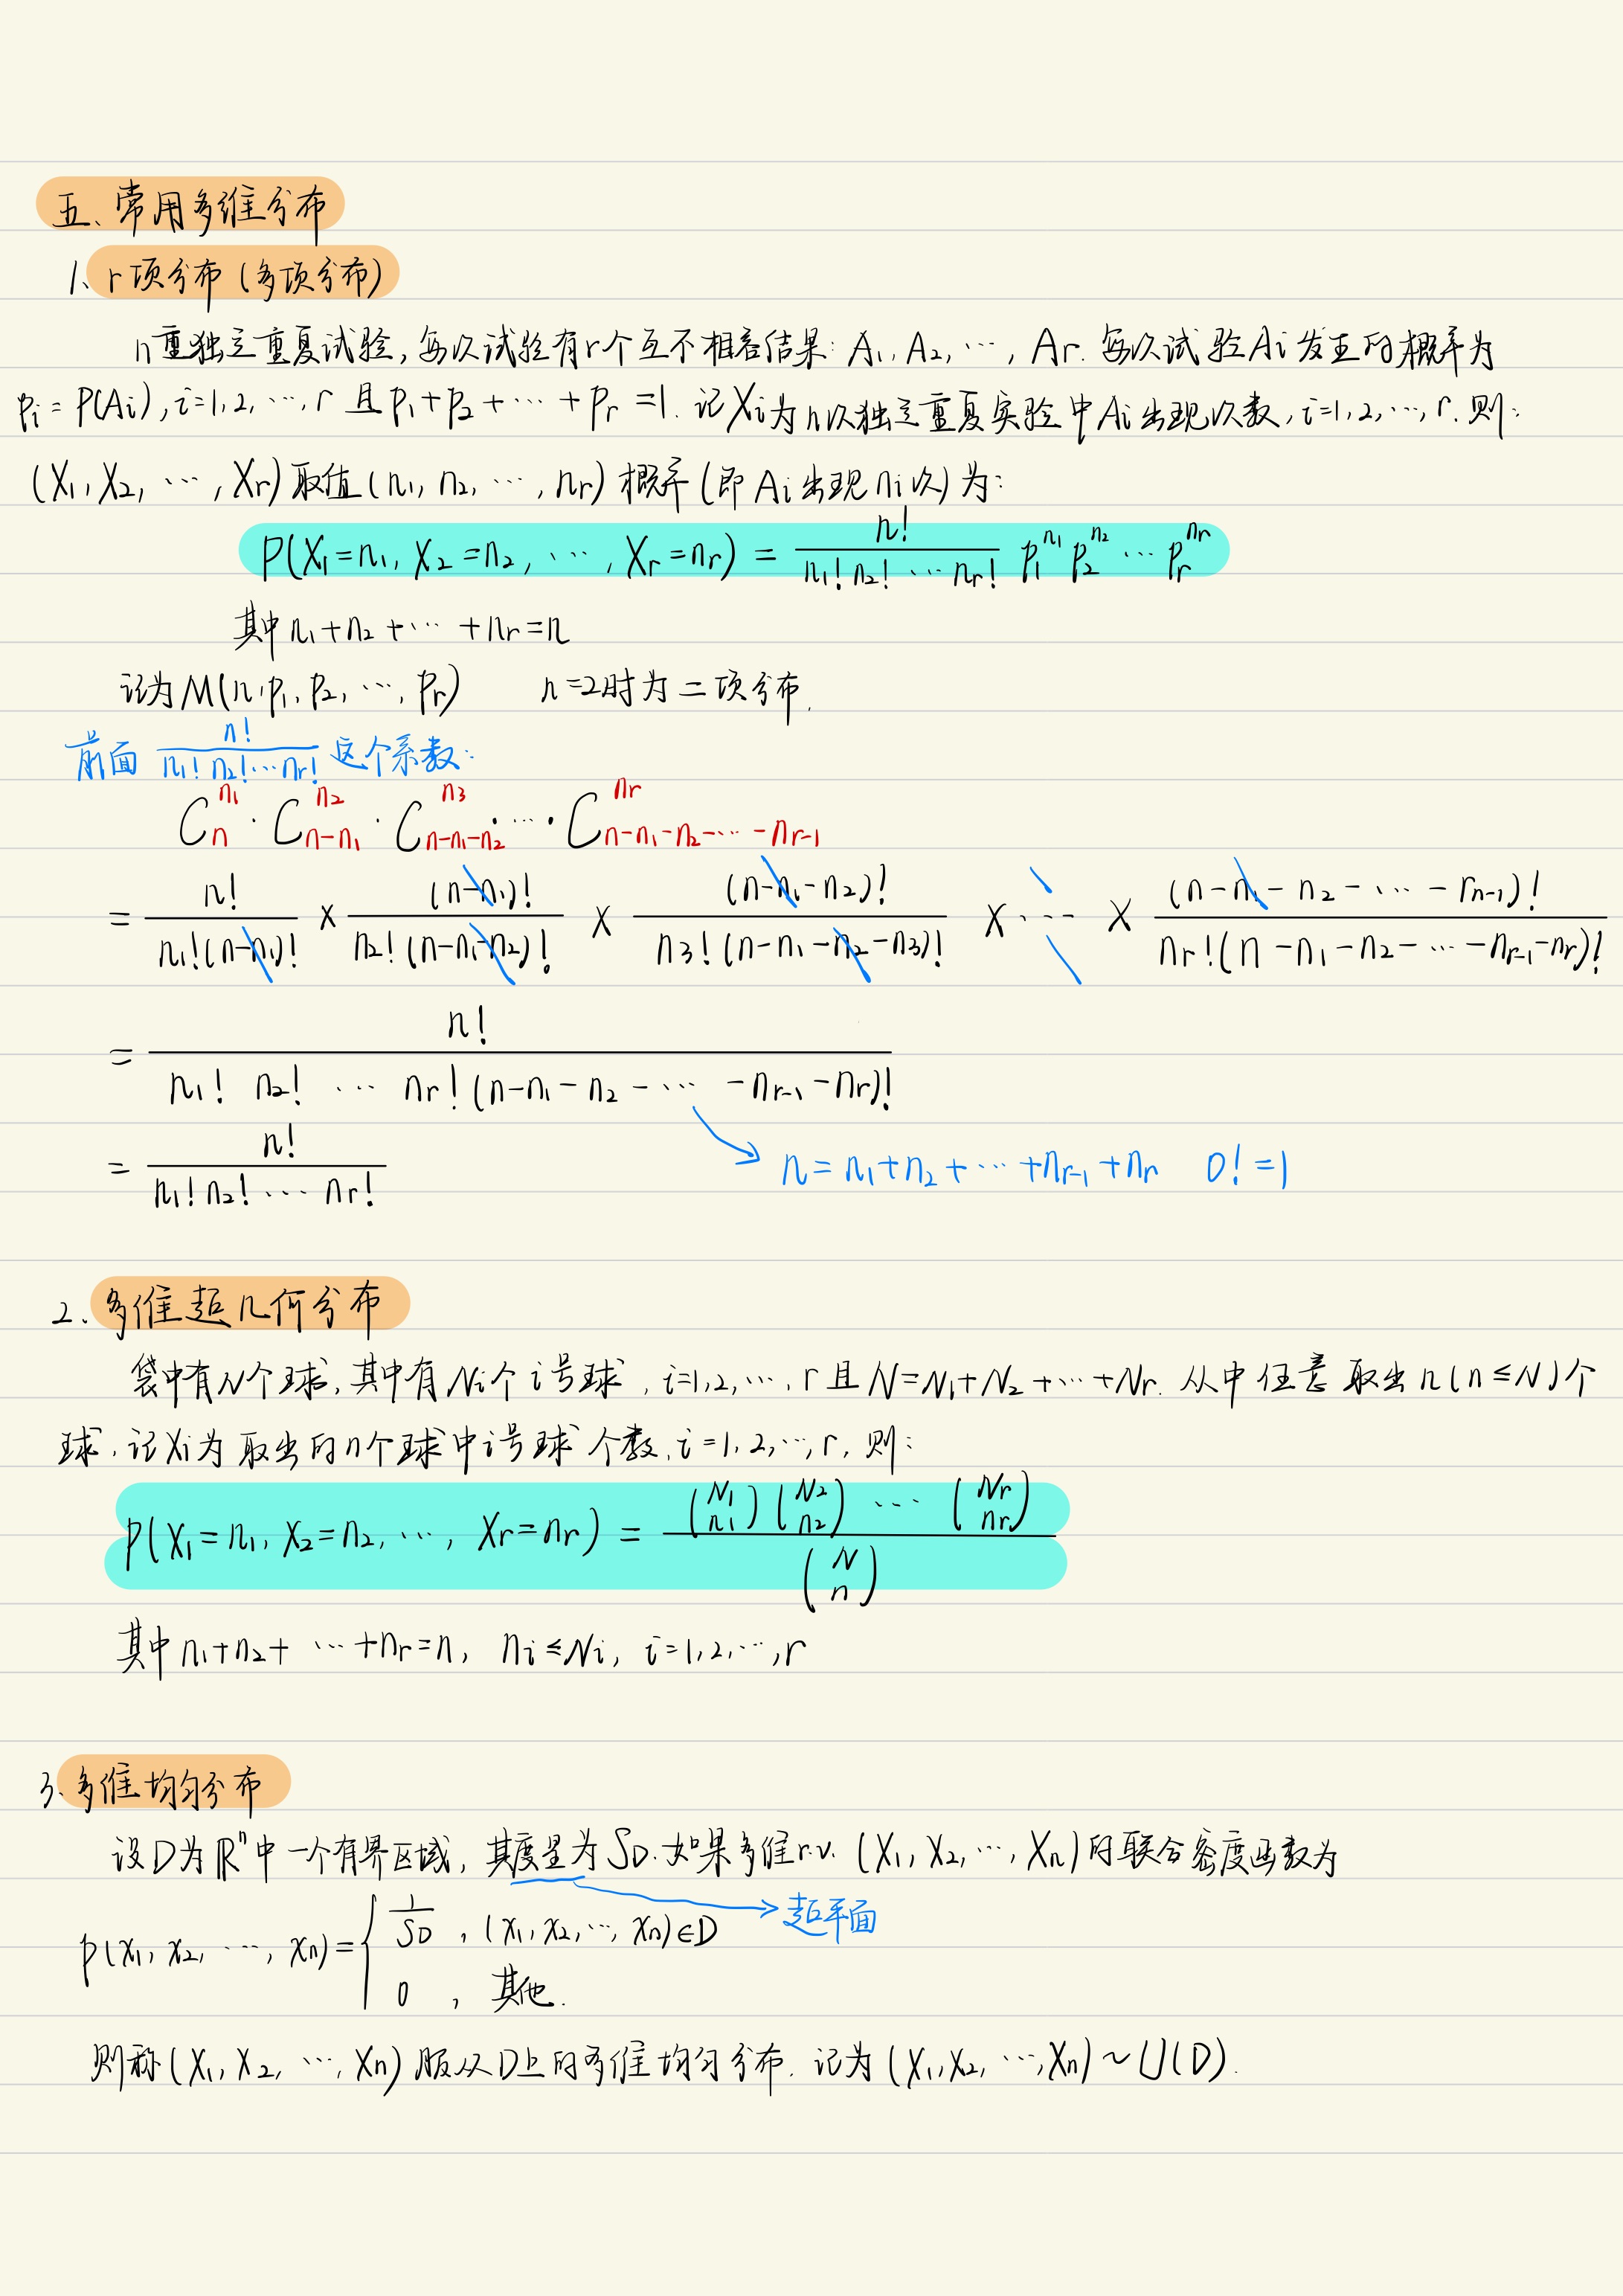 五、常用多维分布
1、r项分布(多项分布)
n重独立重复试验,每次试验有r个互不相容结果: A₁, A₂, ⋯, Ar. 每次试验Ai发生的概率为
pi = P(Ai), i=1,2,⋯,r 且 p₁+p₂+⋯+pr=1. 记Xi为n次独立重复实验中Ai出现次数, i=1,2,⋯,r. 则:
(X₁, X₂, ⋯, Xr)取值(n₁, n₂, ⋯, nr)概率(即Ai出现ni次)为:
$P(X_1=n_1, X_2=n_2, \cdots, X_r=n_r) = \frac{n!}{n_1! n_2! \cdots n_r!} p_1^{n_1} p_2^{n_2} \cdots p_r^{n_r}$
其中 n₁+n₂+⋯+nr=n
记为M(n, p₁, p₂, ⋯, pr) n=2时为二项分布.
前面 $\frac{n!}{n_1! n_2! \cdots n_r!}$ 这个系数:
$C_n^{n_1} \cdot C_{n-n_1}^{n_2} \cdot C_{n-n_1-n_2}^{n_3} \cdot \cdots \cdot C_{n-n_1-n_2-\cdots-n_{r-1}}^{n_r}$
$= \frac{n!}{n_1!(n-n_1)!} \times \frac{(n-n_1)!}{n_2!(n-n_1-n_2)!} \times \frac{(n-n_1-n_2)!}{n_3!(n-n_1-n_2-n_3)!} \times \cdots \times \frac{(n-n_1-n_2-\cdots-r_{n-1})!}{n_r!(n-n_1-n_2-\cdots-n_{r-1}-n_r)!}$
$= \frac{n!}{n_1! n_2! \cdots n_r!(n-n_1-n_2-\cdots-n_{r-1}-n_r)!}$
$= \frac{n!}{n_1! n_2! \cdots n_r!}$ n=n₁+n₂+⋯+n_{r-1}+nr 0!=1
2、多维超几何分布
袋中有N个球,其中有Ni个i号球, i=1,2,⋯,r 且 N=N₁+N₂+⋯+Nr. 从中任意取出n(n≤N)个
球, 记Xi为取出的n个球中i号球个数, i=1,2,⋯,r, 则:
$P(X_1=n_1, X_2=n_2, \cdots, X_r=n_r) = \frac{\binom{N_1}{n_1}\binom{N_2}{n_2} \cdots \binom{N_r}{n_r}}{\binom{N}{n}}$
其中 n₁+n₂+⋯+nr=n, ni≤Ni, i=1,2,⋯,r
3、多维均匀分布
设D为ℝⁿ中一个有界区域, 其度量为S_D. 如果多维r.v. (X₁, X₂, ⋯, Xn)的联合密度函数为
超平面
$p(x_1, x_2, \cdots, x_n) = \begin{cases} \frac{1}{S_D}, (x_1, x_2, \cdots, x_n) \in D \\ 0, 其他. \end{cases}$
则称(X₁, X₂, ⋯, Xn)服从D上的多维均匀分布. 记为(X₁, X₂, ⋯, Xn) ~ U(D).